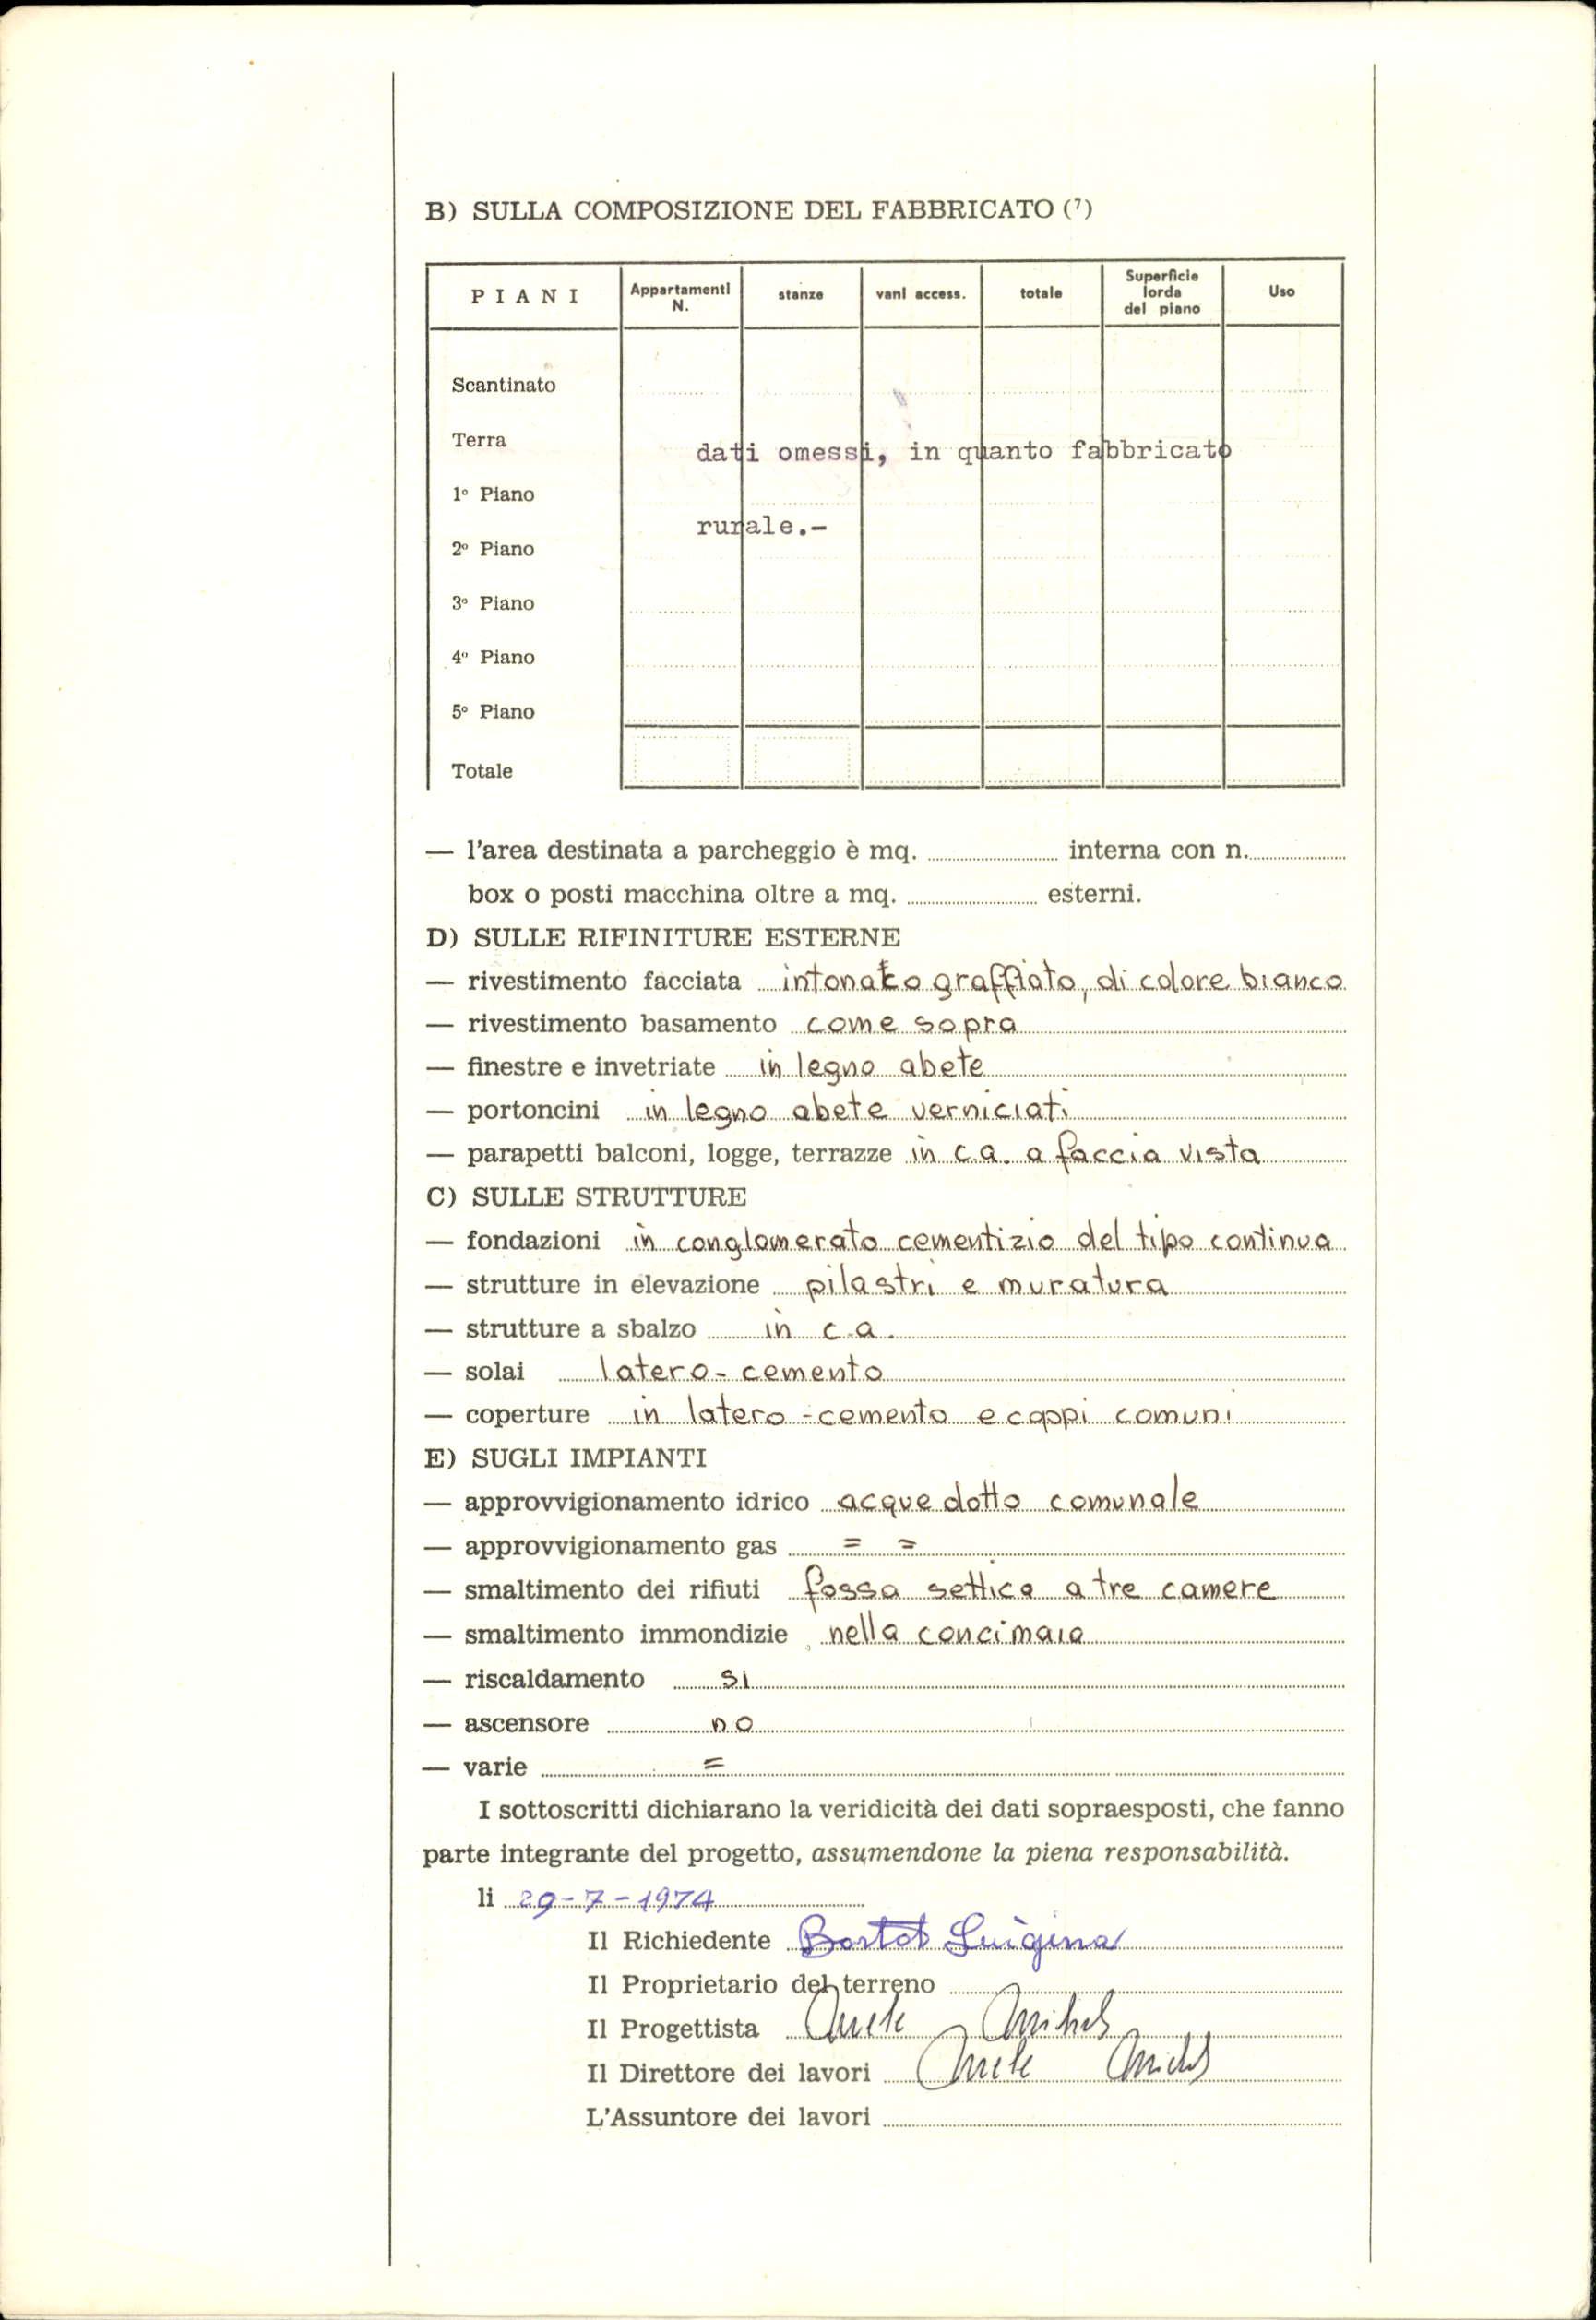 B) SULLA COMPOSIZIONE DEL FABBRICATO (⁷)
PIANI Appartamenti N. stanze vani access. totale Superficie lorda del piano Uso
Scantinato
Terra
dati omessi, in quanto fabbricato
1º Piano
rurale.-
2º Piano
3º Piano
4º Piano
5º Piano
Totale
— l'area destinata a parcheggio è mq. interna con n.
box o posti macchina oltre a mq. esterni.
D) SULLE RIFINITURE ESTERNE
— rivestimento facciata intonato graffiato, di colore bianco
— rivestimento basamento come sopra
— finestre e invetriate in legno abete
— portoncini in legno abete verniciati
— parapetti balconi, logge, terrazze in c.a. a faccia vista
C) SULLE STRUTTURE
— fondazioni in conglomerato cementizio del tipo continua
— strutture in elevazione pilastri e muratura
— strutture a sbalzo in c.a.
— solai latero-cemento
— coperture in latero-cemento e coppi comuni
E) SUGLI IMPIANTI
— approvvigionamento idrico acquedotto comunale
— approvvigionamento gas = =
— smaltimento dei rifiuti fossa settica a tre camere
— smaltimento immondizie nella concimaia
— riscaldamento si
— ascensore no
— varie =
I sottoscritti dichiarano la veridicità dei dati sopraesposti, che fanno
parte integrante del progetto, assumendone la piena responsabilità.
li 29-7-1974
Il Richiedente Bortot Luigina
Il Proprietario del terreno
Il Progettista
Il Direttore dei lavori
L'Assuntore dei lavori